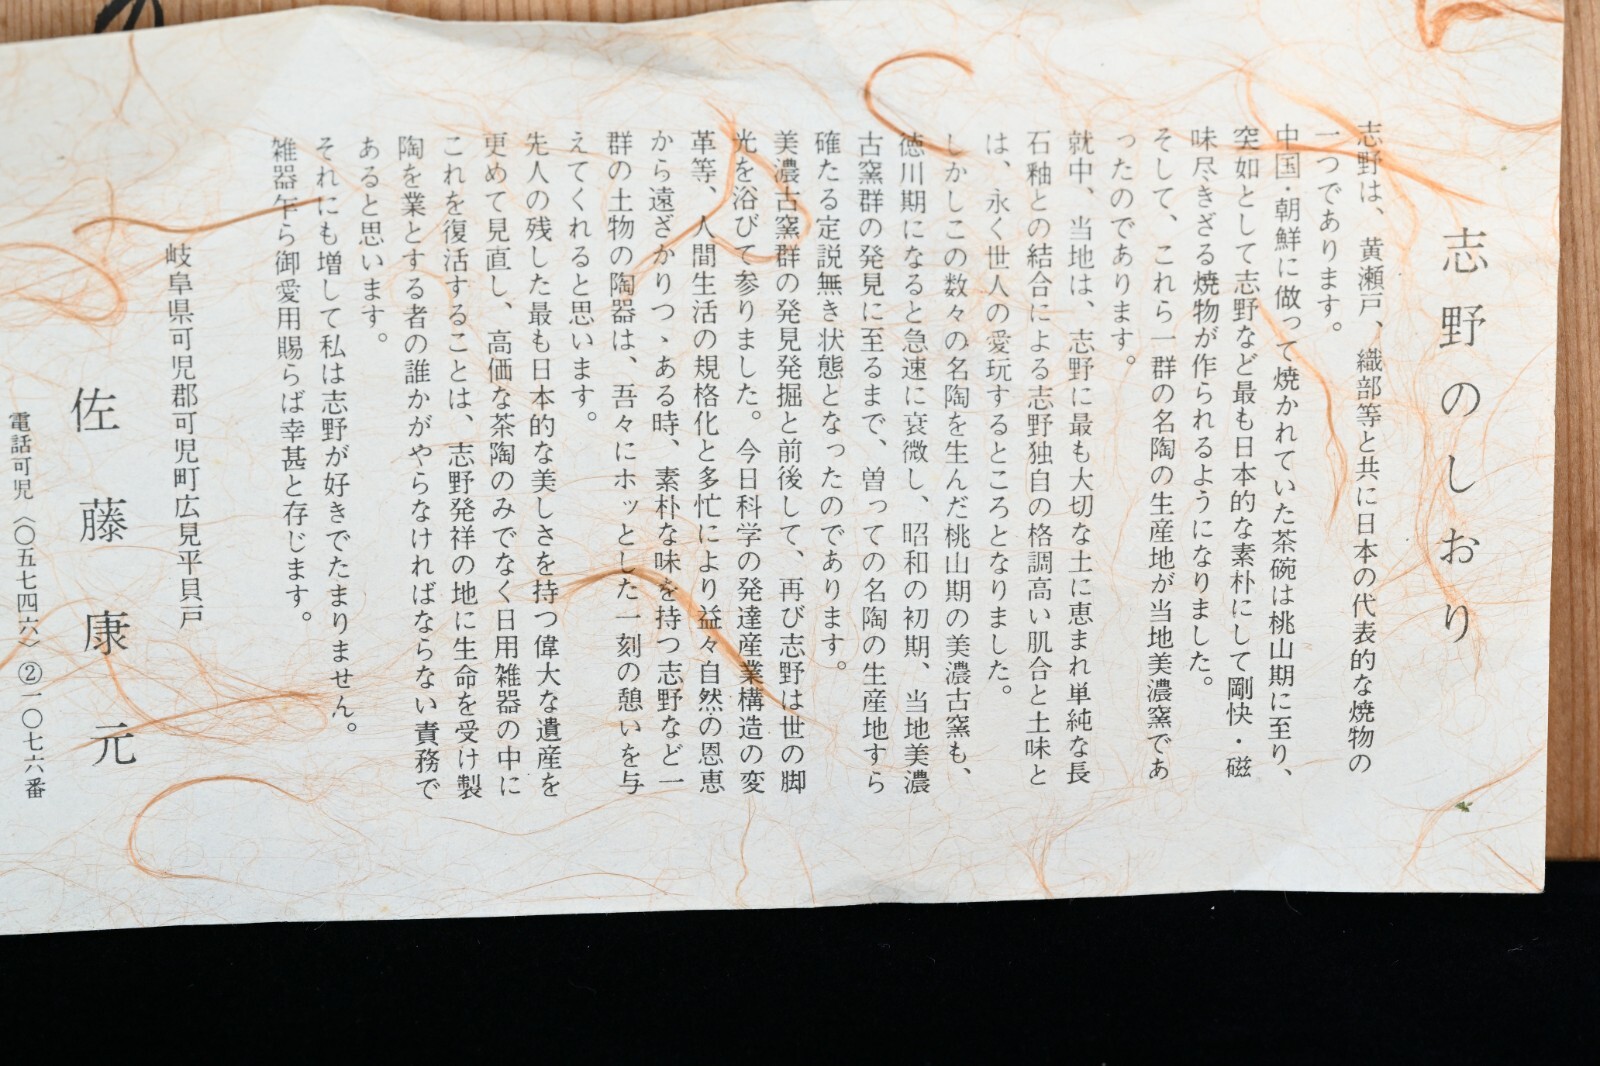 志野のしおり
志野は、黄瀬戸、織部等と共に日本の代表的な焼物の
一つであります。
中国・朝鮮に倣って焼かれていた茶碗は桃山期に至り、
突如として志野など最も日本的な素朴にして剛快・磁
味尽きざる焼物が作られるようになりました。
そして、これら一群の名陶の生産地が当地美濃窯であ
ったのであります。
就中、当地は、志野に最も大切な土に恵まれ単純な長
石釉との結合による志野独自の格調高い肌合と土味と
は、永く世人の愛玩するところとなりました。
しかしこの数々の名陶を生んだ桃山期の美濃古窯も、
徳川期になると急速に衰微し、昭和の初期、当地美濃
古窯群の発見に至るまで、曽っての名陶の生産地すら
確たる定説無き状態となったのであります。
美濃古窯群の発見発掘と前後して、再び志野は世の脚
光を浴びて参りました。今日科学の発達産業構造の変
革等、人間生活の規格化と多忙により益々自然の恩恵
から遠ざかりつゝある時、素朴な味を持つ志野など一
群の土物の陶器は、吾々にホッとした一刻の憩いを与
えてくれると思います。
先人の残した最も日本的な美しさを持つ偉大な遺産を
更めて見直し、高価な茶陶のみでなく日用雑器の中に
これを復活することは、志野発祥の地に生命を受け製
陶を業とする者の誰かがやらなければならない責務で
あると思います。
それにも増して私は志野が好きでたまりません。
雑器乍ら御愛用賜らば幸甚と存じます。
岐阜県可児郡可児町広見平貝戸
佐藤康元
電話可児〈〇五七四六〉②一〇七六番